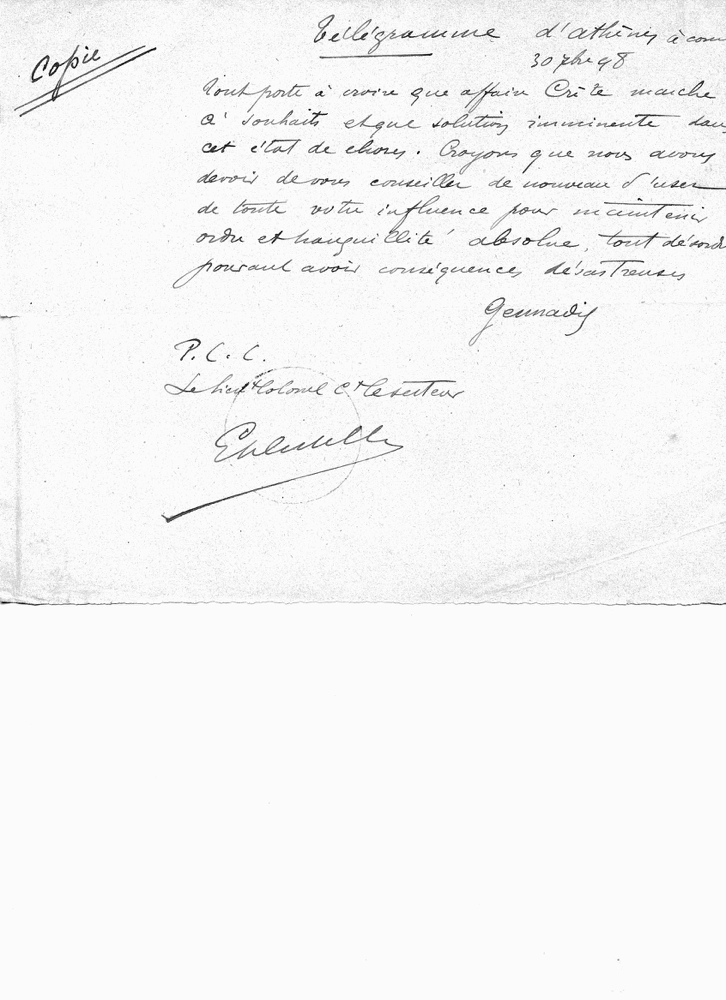 Copie
Télégramme d'athènes à
30 7bre 98
Tout porte à croire que affaire Crète marche
à souhaits et que solution imminente dans
cet état de choses. Croyons que nous avons
devoir de vous conseiller de nouveau d'user
de toute votre influence pour maintenir
ordre et tranquillité absolue, tout désordre
pouvant avoir conséquences désastreuses
Gennadis
P. C. C.
Le Lieut Colonel Ct le secteur